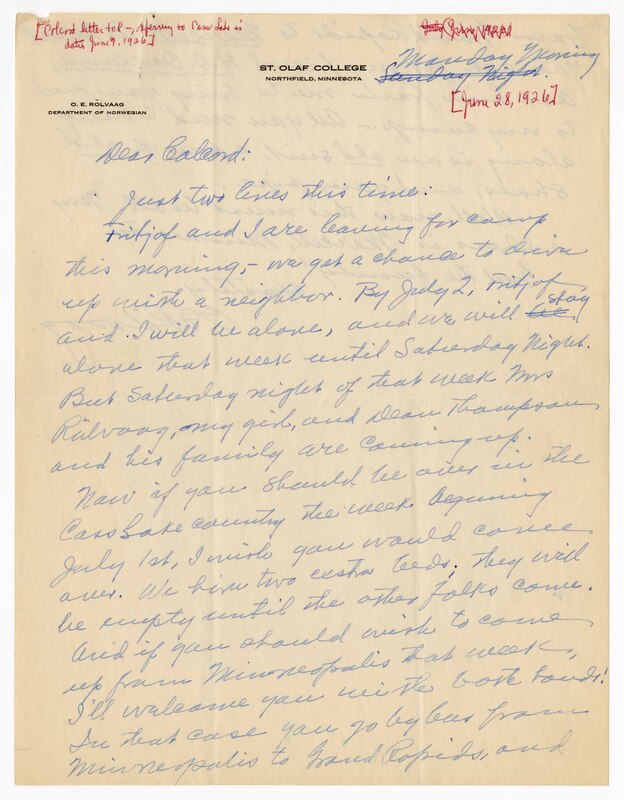 [Colcord letter to R –, referring to Cass Lake is
dated June 9, 1926]
ST. OLAF COLLEGE
NORTHFIELD, MINNESOTA
O. E. ROLVAAG
DEPARTMENT OF NORWEGIAN
Monday Morning
Sunday Night.
[June 28, 1926]
Dear Colcord:
Just two lines this time:
Fritjof and I are leaving for camp
this morning, – we get a chance to drive
up with a neighbor. By July 2, Fritjof
and I will be alone, and we will stay
alone that week until Saturday Night.
But Saturday night of that week Mrs
Rølvaag, my girl, and Dean Thompson
and his family are coming up.
Now if you should be over in the
Cass Lake country the week beginning
July 1st, I wish you would come
over. We have two extra beds; they will
be empty until the other folks come.
And if you should wish to come
up from Minneapolis that week,
I'll welcome you with both hands!
In that case you go by bus from
Minneapolis to Grand Rapids, and